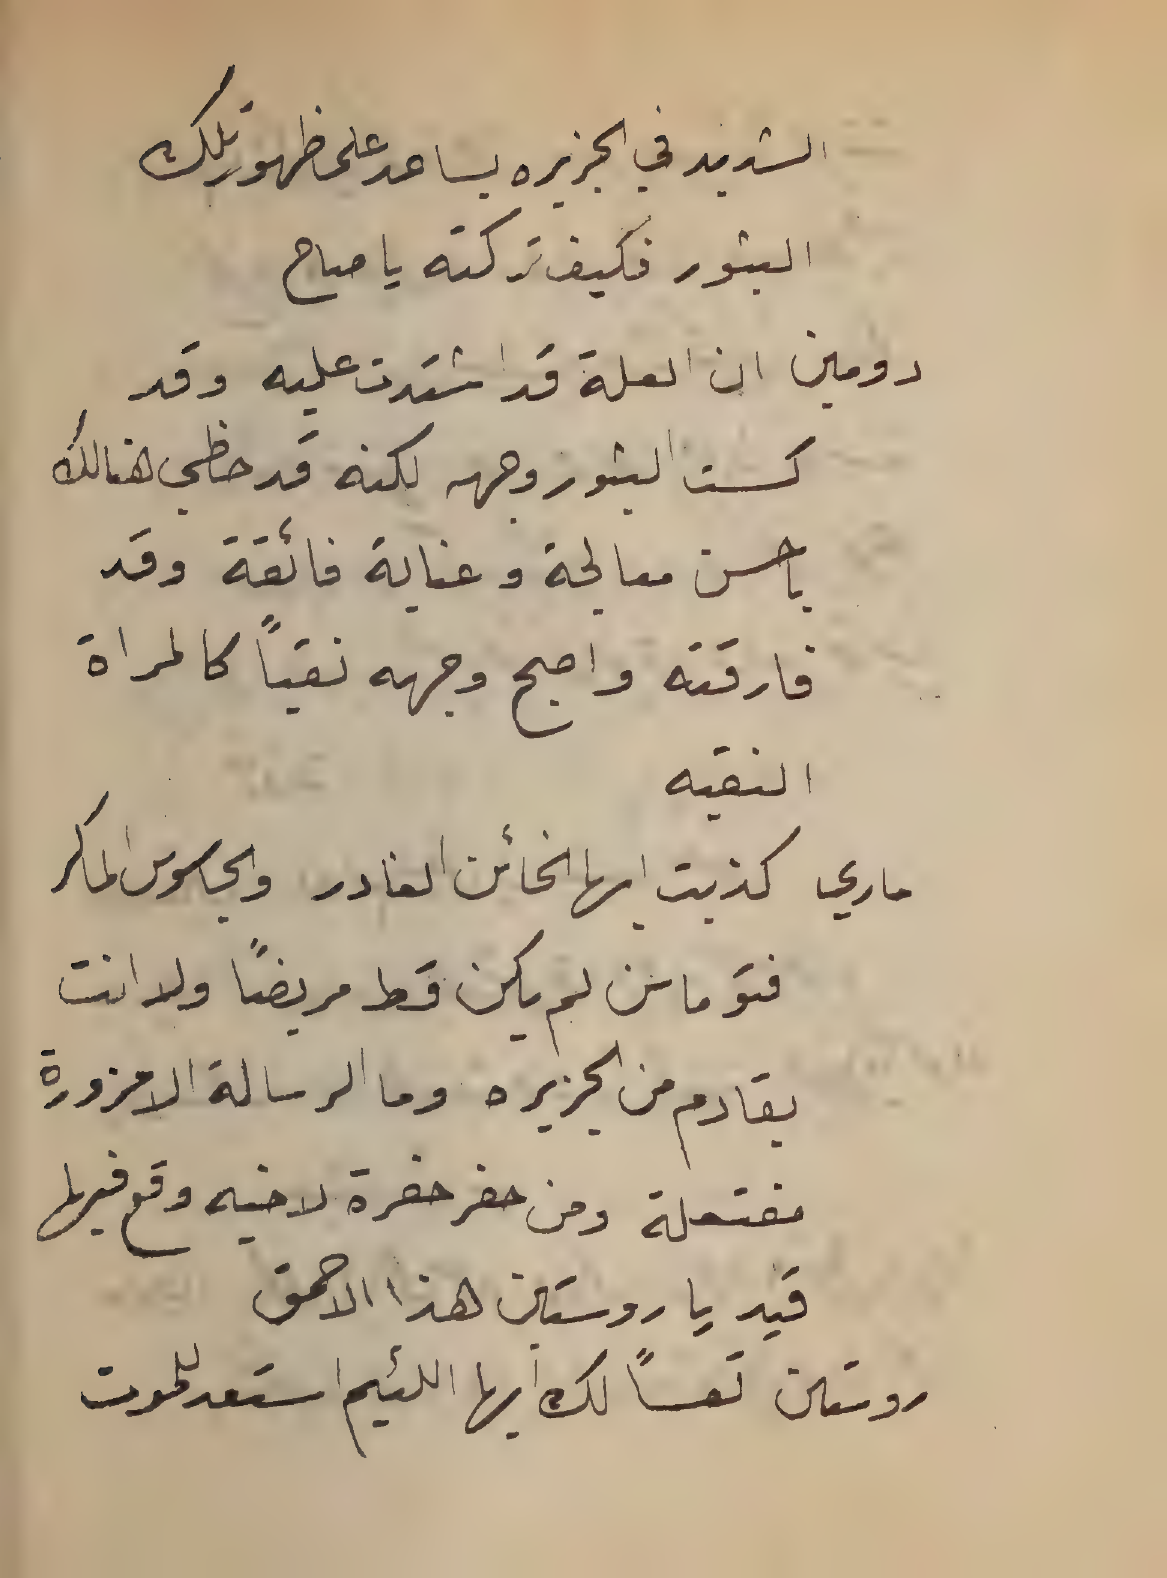 الشديد في الجزيره يساعد على ظهور تلك
البثور فكيف تركته يا صاح
دومين ان العلة قد اشتدت عليه وقد
كست البثور وجهه لكنه قد حظي هنالك
باحسن معالجة وعناية فائقة وقد
فارقته واصبح وجهه نقياً كالمراة
النقيه
ماري كذبت ايها الخائن الغادر والجاسوس الماكر
فتوماس لم يكن قط مريضاً ولا انت
بقادم من الجزيره وما الرسالة الا مزورة
مفتعلة ومن حفر حفرة لاخيه وقع فيها
قيد يا روستين هذا الاحمق
روستين تعساً لك ايها اللئيم استعد للموت